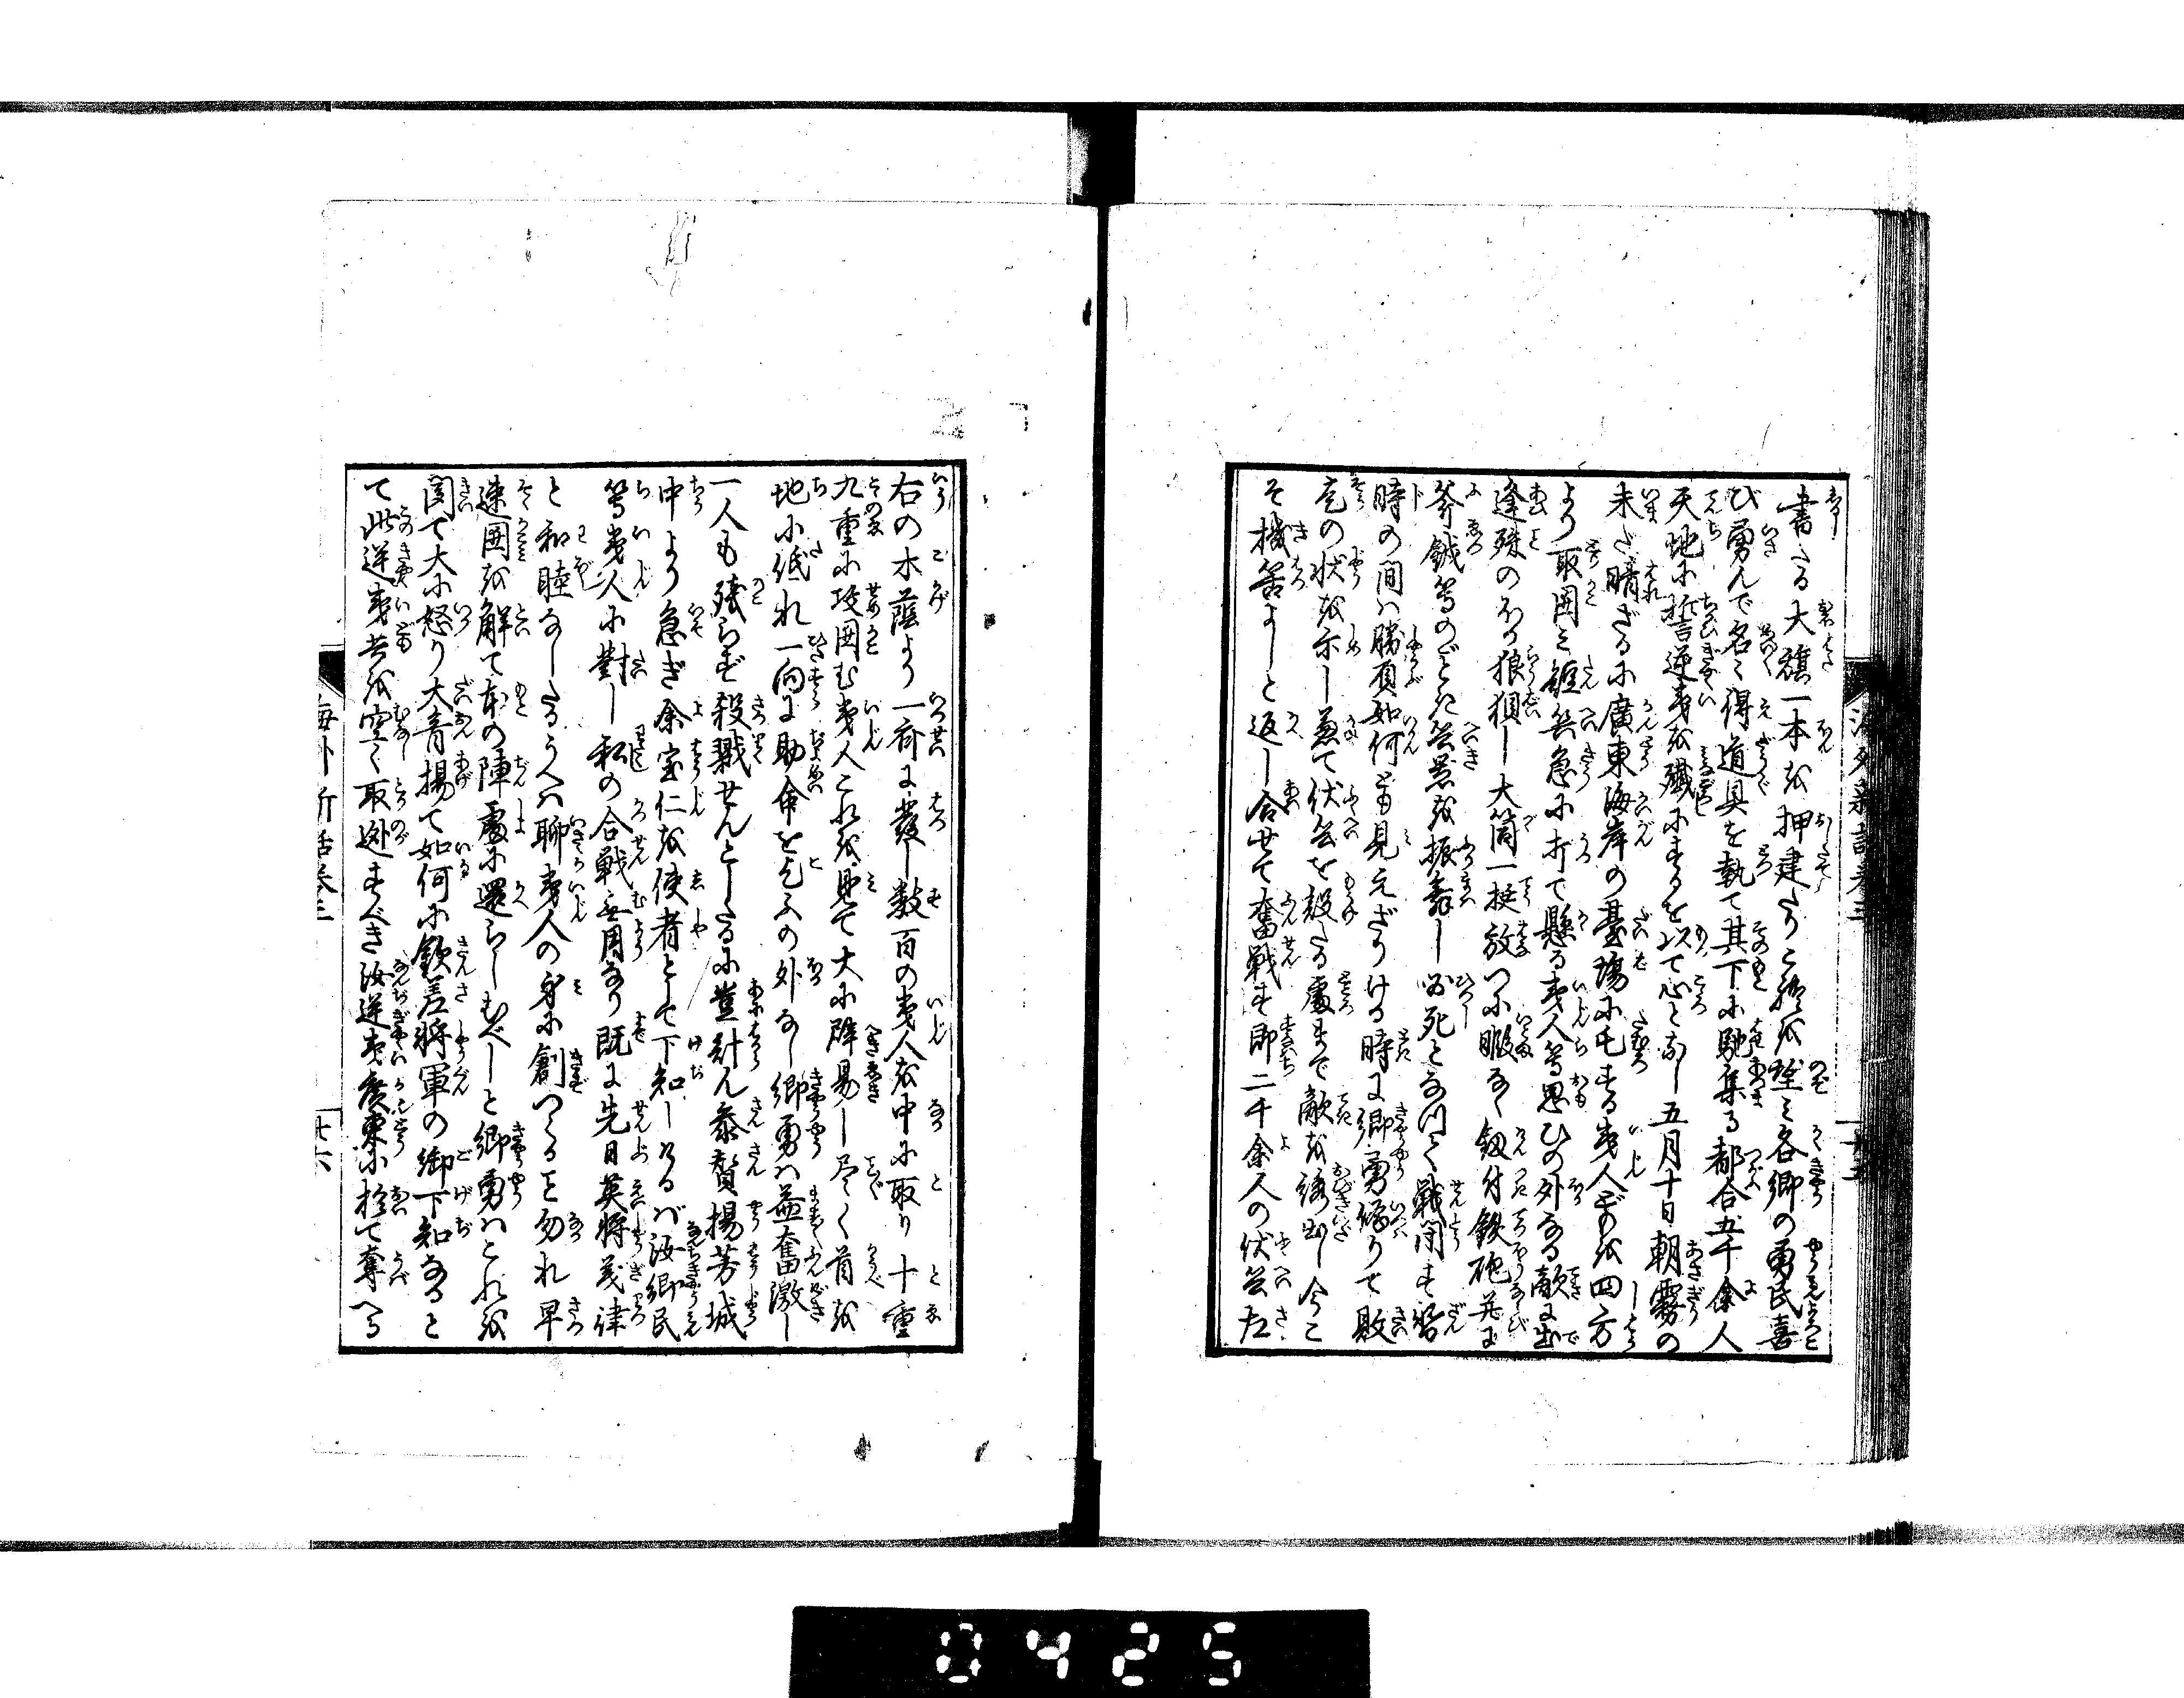 書たる大旗一本を押建たりこれを望み各郷の勇民喜
び勇んで名々得道具を執て其下に馳集る都合五千余人
天地に誓逆夷を殲にするを以て心となし五月十日朝霧の
未だ晴ざるに廣東海岸の臺場に屯する夷人どもを四方
より取囲み短兵急に打て懸る夷人等思ひの外なる敵に出
逢殊の外狼狽し大筒一挺放つに暇なく劔付鉄砲并に
斧鉞等のごとき兵器を振舞し必死となつて戦闘す暫
時の間は勝負如何とも見えざりける時に郷勇偽りて敗
走の状を示し兼て伏兵を設たる處まで敵を誘出し今こ
そ機筈よしと返し合せて奮戦す即二千余人の伏兵左
右の木蔭より一斉に發し数百の夷人を中に取り十重
九重に攻囲む夷人これを見て大に辟易し尽く首を
地に低れ一向に助命を乞ふの外なし郷勇は益奮激し
一人も残らず殺戮せんとしたるに豈計ん参賛揚芳城
中より急ぎ余宝仁を使者として下知しけるは汝郷民
等夷人に對し私の合戦無用なり既に先日英将義律
と和睦なしたるうへは聊夷人の身に創つくる事勿れ早
速囲を解て本の陣處に還らしむべしと郷勇はこれを
聞て大に怒り大音揚て如何に欽差将軍の御下知なると
て此逆夷共を空く取逃すべき汝逆夷廣東に於て奪へる
海外新話巻三
廿六
0425